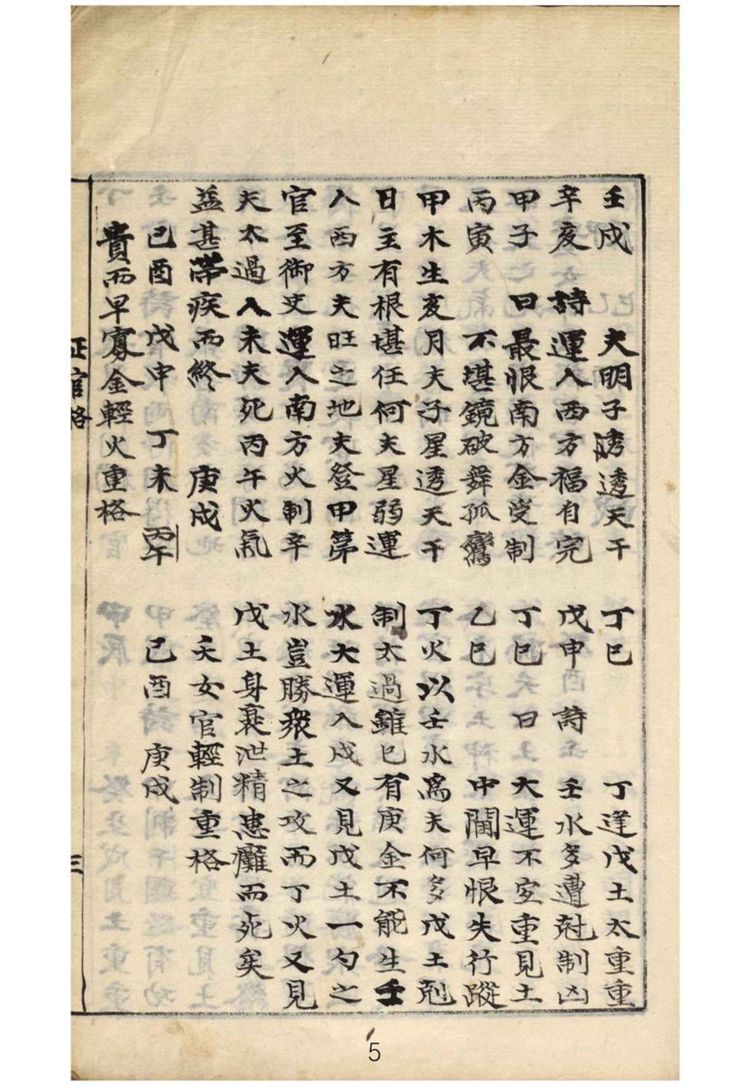 壬戌 夫明子透透天干
辛亥 詩 運入西方福自完
甲子 曰 最恨南方金受制
丙寅 不堪鏡破舞孤鸞
甲木生亥月夫子星透天干
日主有根堪任何夫星弱運
入西方夫旺之地夫登甲第
官至御史運入南方火制辛
夫太過入未夫死丙午火氣
益甚帶疾而終 庚戌
己酉 戊申 丁未 丙午
貴而早寡金輕火重格
丁巳 丁逢戊土太重重
戊申 詩 壬水多遭尅制凶
丁巳 曰 大運不宜重見土
乙巳 中閨早恨失行蹤
丁火以壬水為夫何多戊土剋
制太過雖巳有庚金不能生壬
水大運入戌又見戊土一勺之
水豈勝衆土之攻而丁火又見
戊土身衰泄精患癱而死矣
夭女官輕制重格
己酉 庚戌
正官格
三
5